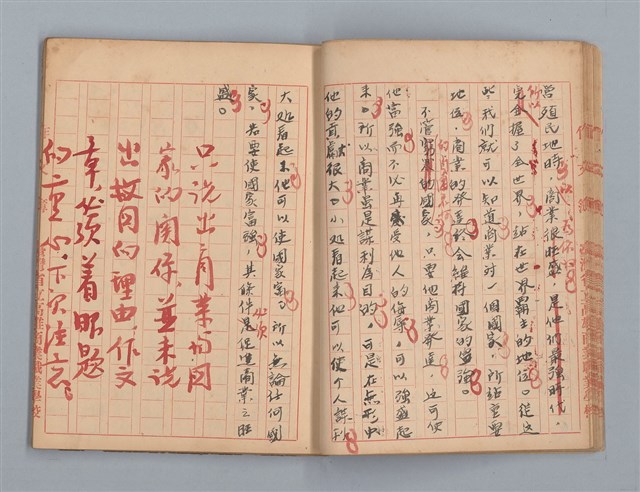 營殖民地時，商業很旺盛，是他們最強時代，
完全握了全世界，站在世界霸主的地位。從這
些我們就可以知道商業對一個國家，所站重要
地位，商業的發達會維持國家的富強。
不管窮的國家，只要他商業發達，也可使
他富強而不以再受他人的侮辱，可以強盛起
來。所以商業雖是謀利為目的，可是在無形中
他的貢獻很大。小処看起來他可以使個人謀利
大処看起來他可以使國家富。所以無論任何國
家，若要使國家富強，其條件必須是促進商業之旺
盛。
只說出商業与国
家的関係，並未說
出敬岡的理由，作文
章必須着眼題
的重心，下次注意。